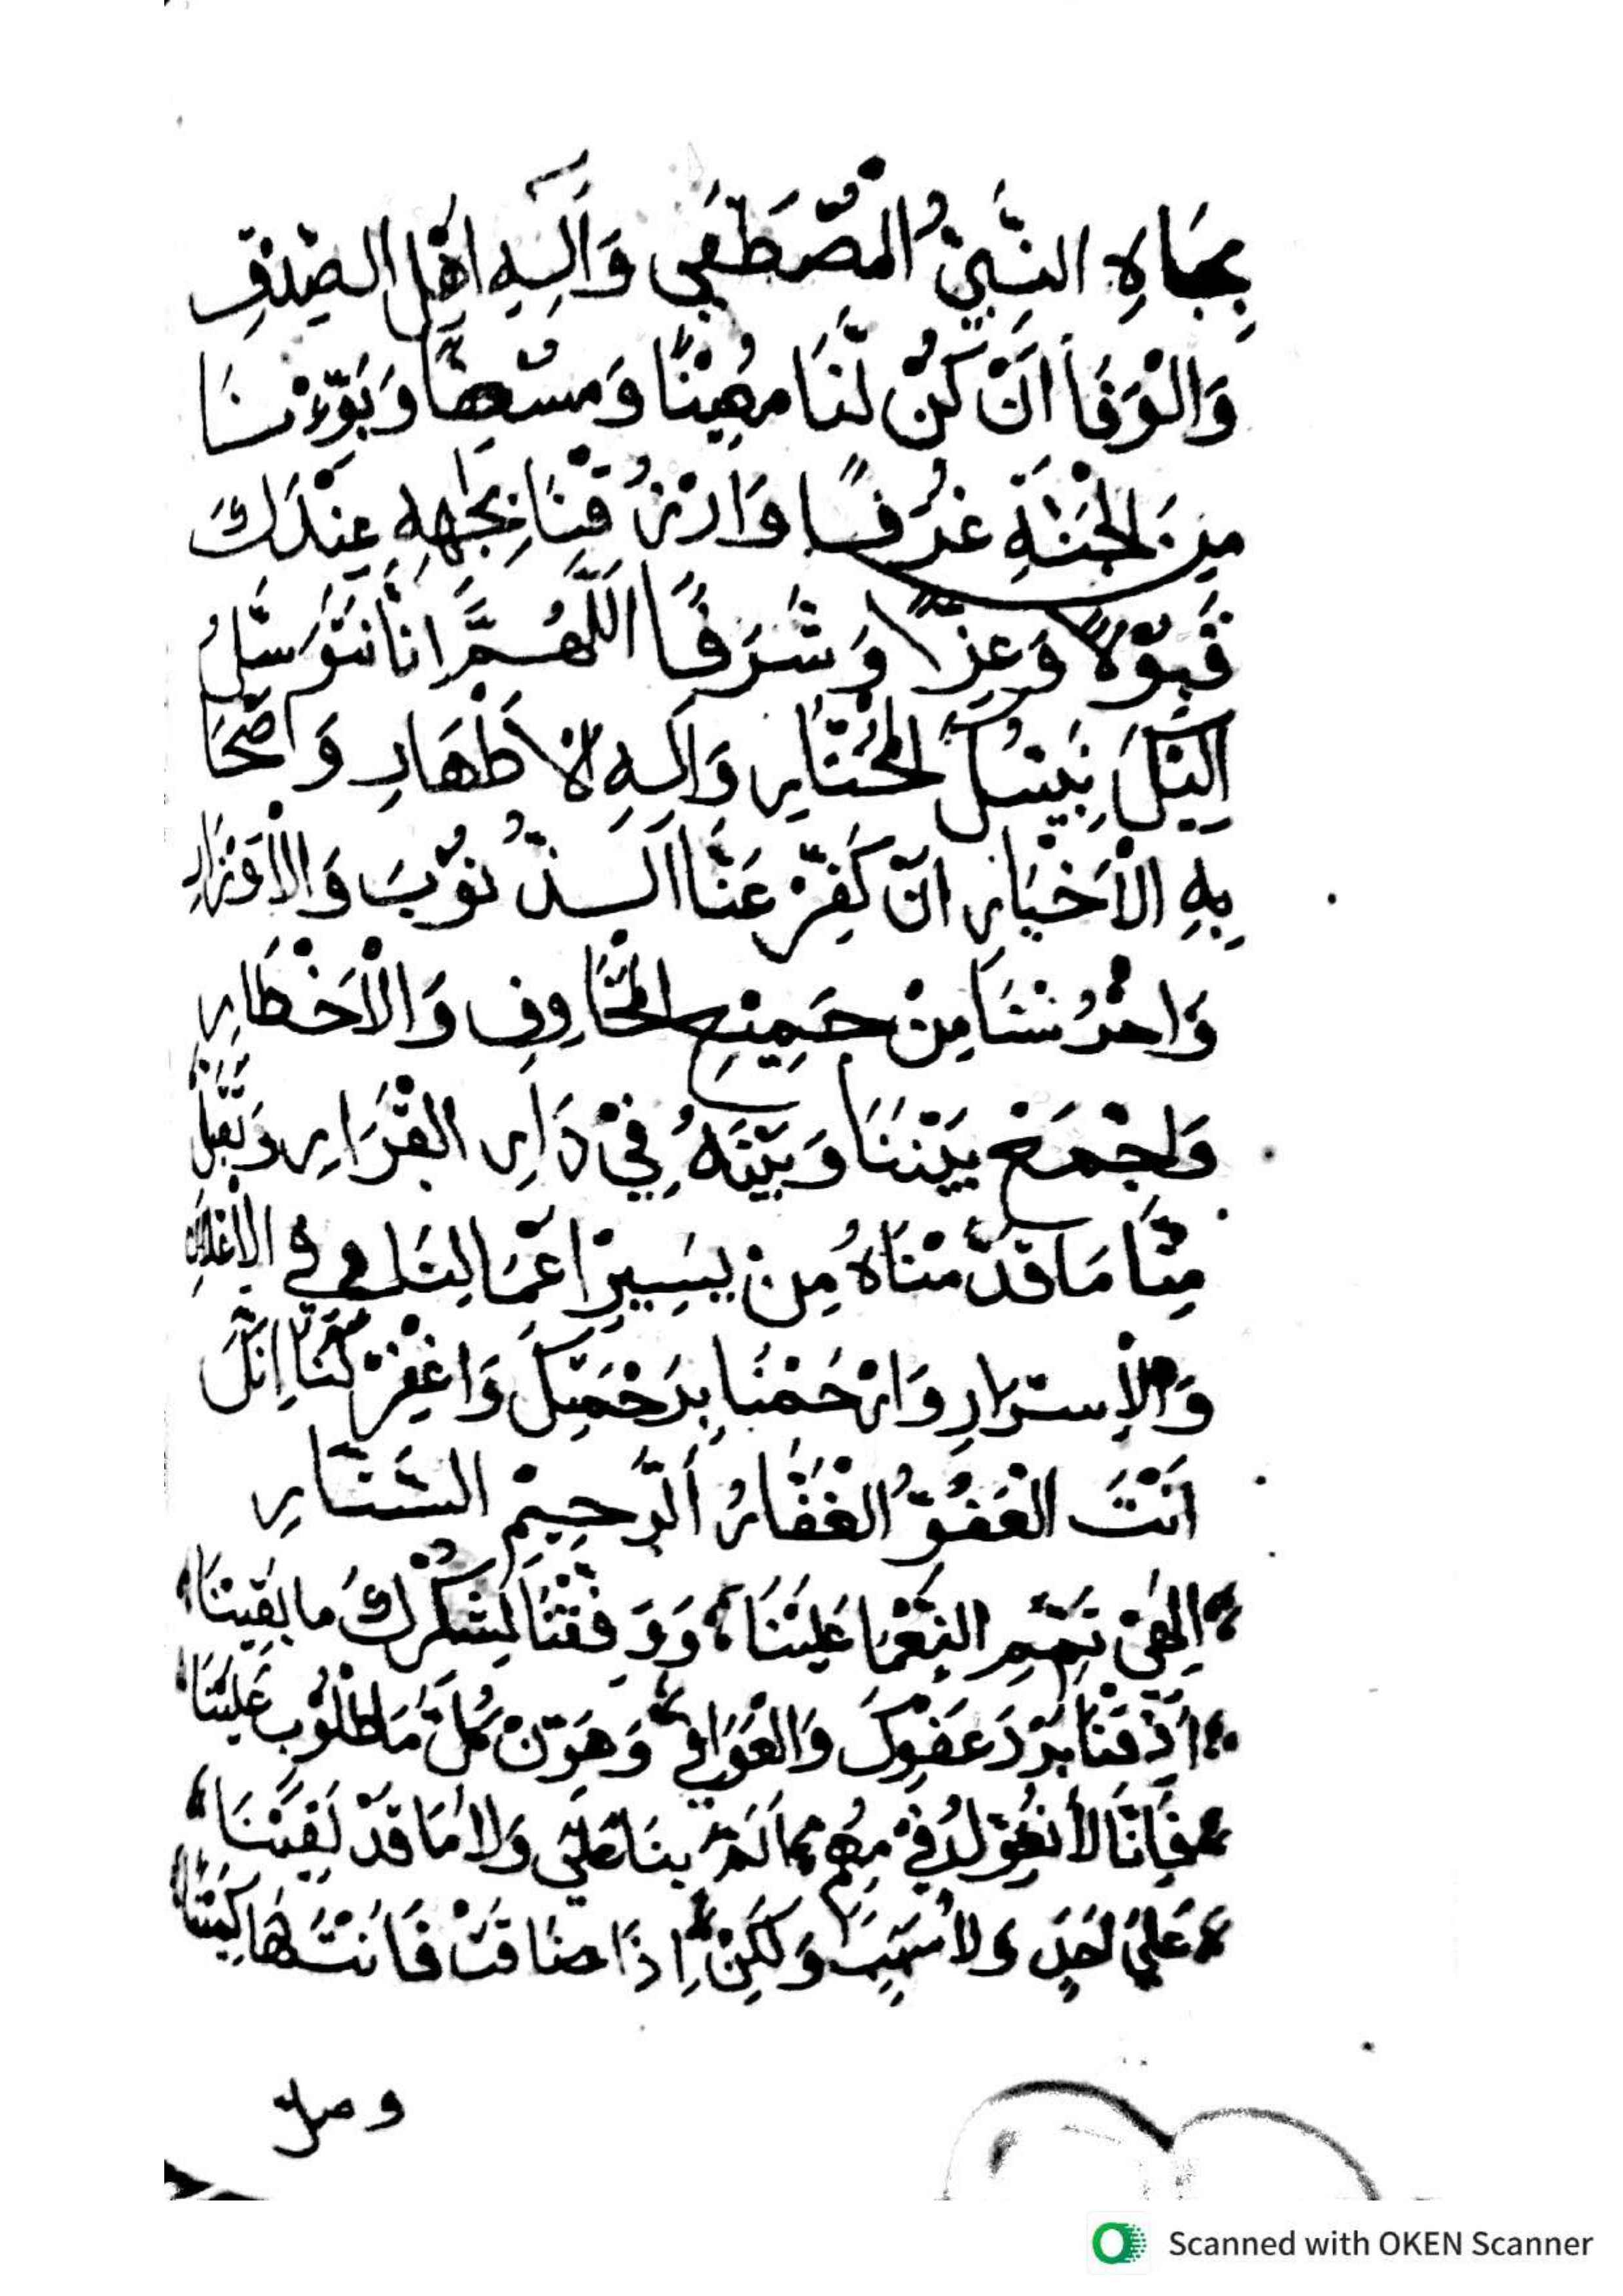 بِجَاهِ النَّبِيِّ الْمُصْطَفَى وَآلِهِ اَهْلِ الصِّدْقِ
وَالْوَفَا اَنْ كُنْ لَّنَا مُعِيْنًا وَمُسْعِفًا وَبَوِّئْنَا
مِنَ الْجَنَّةِ غُرَفًا وَارْزُقْنَا بِجَاهِهِ عِنْدَكَ
قَبُوْلًا وَعِزًّا وَشَرَفًا اَللّٰهُمَّ اِنَّا نَتَوَسَّلُ
اِلَيْكَ بِنَبِيِّكَ الْمُخْتَارِ وَآلِهِ الْاَطْهَارِ وَاَصْحَا
بِهِ الْاَخْيَارِ اَنْ كَفِّرْ عَنَّا الذُّنُوْبَ وَالْاَوْزَارِ
وَاحْرُسْنَا مِنْ جَمِيْعِ الْمَخَاوِفِ وَالْاَخْطَارِ
وَاجْمَعْ بَيْنَنَا وَبَيْنَهُ فِيْ دَارِ الْقَرَارِ وَتَقَبَّلْ
مِنَّا مَا قَدَّمْنَاهُ مِنْ يَسِيْرِ اَعْمَالِنَا فِي الْاِعْلَانِ
وَالْاِسْرَارِ وَارْحَمْنَا بِرَحْمَتِكَ وَاغْفِرْ لَنَا اِنَّكَ
اَنْتَ الْعَفُوُّ الْغَفَّارُ الرَّحِيْمِ السَّتَّارِ
اِلٰهِيْ تَمِّمِ النَّعْمَا عَلَيْنَا، وَوَفِّقْنَا لِشُكْرِكَ مَا بَقِيْنَا
اَذِقْنَا بَرْدَ عَفْوِكَ وَالْعَوَافِي، وَهَوِّنْ كُلَّ مَطْلُوْبٍ عَلَيْنَا
فَاِنَّا لَا نُعَوِّلُ فِيْ مُهِمٍّ اَلَمَّ بِنَا وَلَا مَا قَدْ لَقِيْنَا
عَلَى اَحَدٍ وَلَا سَبَبٍ وَلَكِنْ اِذَا ضَاقَتْ فَاَنْتَ لَهَا